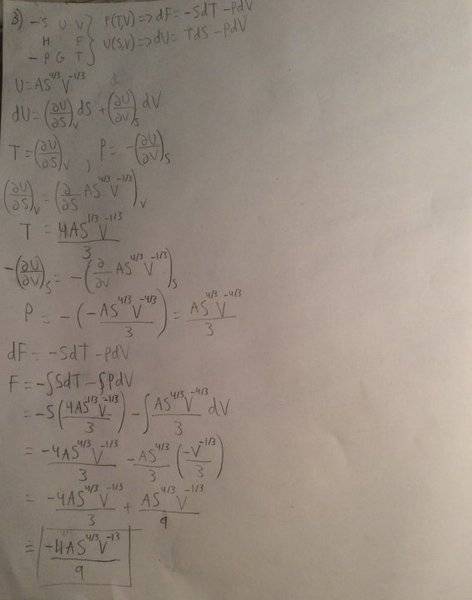 3) -S U V } F(T,V) => dF = -SdT - PdV
H F } U(S,V) => dU = TdS - PdV
-P G T
U = AS^4/3 V^-1/3
dU = (∂U/∂S)_V dS + (∂U/∂V)_S dV
T = (∂U/∂S)_V , P = -(∂U/∂V)_S
(∂U/∂S)_V = (∂/∂S AS^4/3 V^-1/3)_V
T = 4AS^1/3 V^-1/3 / 3
-(∂U/∂V)_S = -(∂/∂V AS^4/3 V^-1/3)_S
P = -(-AS^4/3 V^-4/3 / 3) = AS^4/3 V^-4/3 / 3
dF = -SdT - PdV
F = -∫SdT - ∫PdV
= -S(4AS^1/3 V^-1/3 / 3) - ∫AS^4/3 V^-4/3 / 3 dV
= -4AS^4/3 V^-1/3 / 3 - AS^4/3 / 3 (-V^-1/3 / 3)
= -4AS^4/3 V^-1/3 / 3 + AS^4/3 V^-1/3 / 9
= -4AS^4/3 V^-1/3 / 9